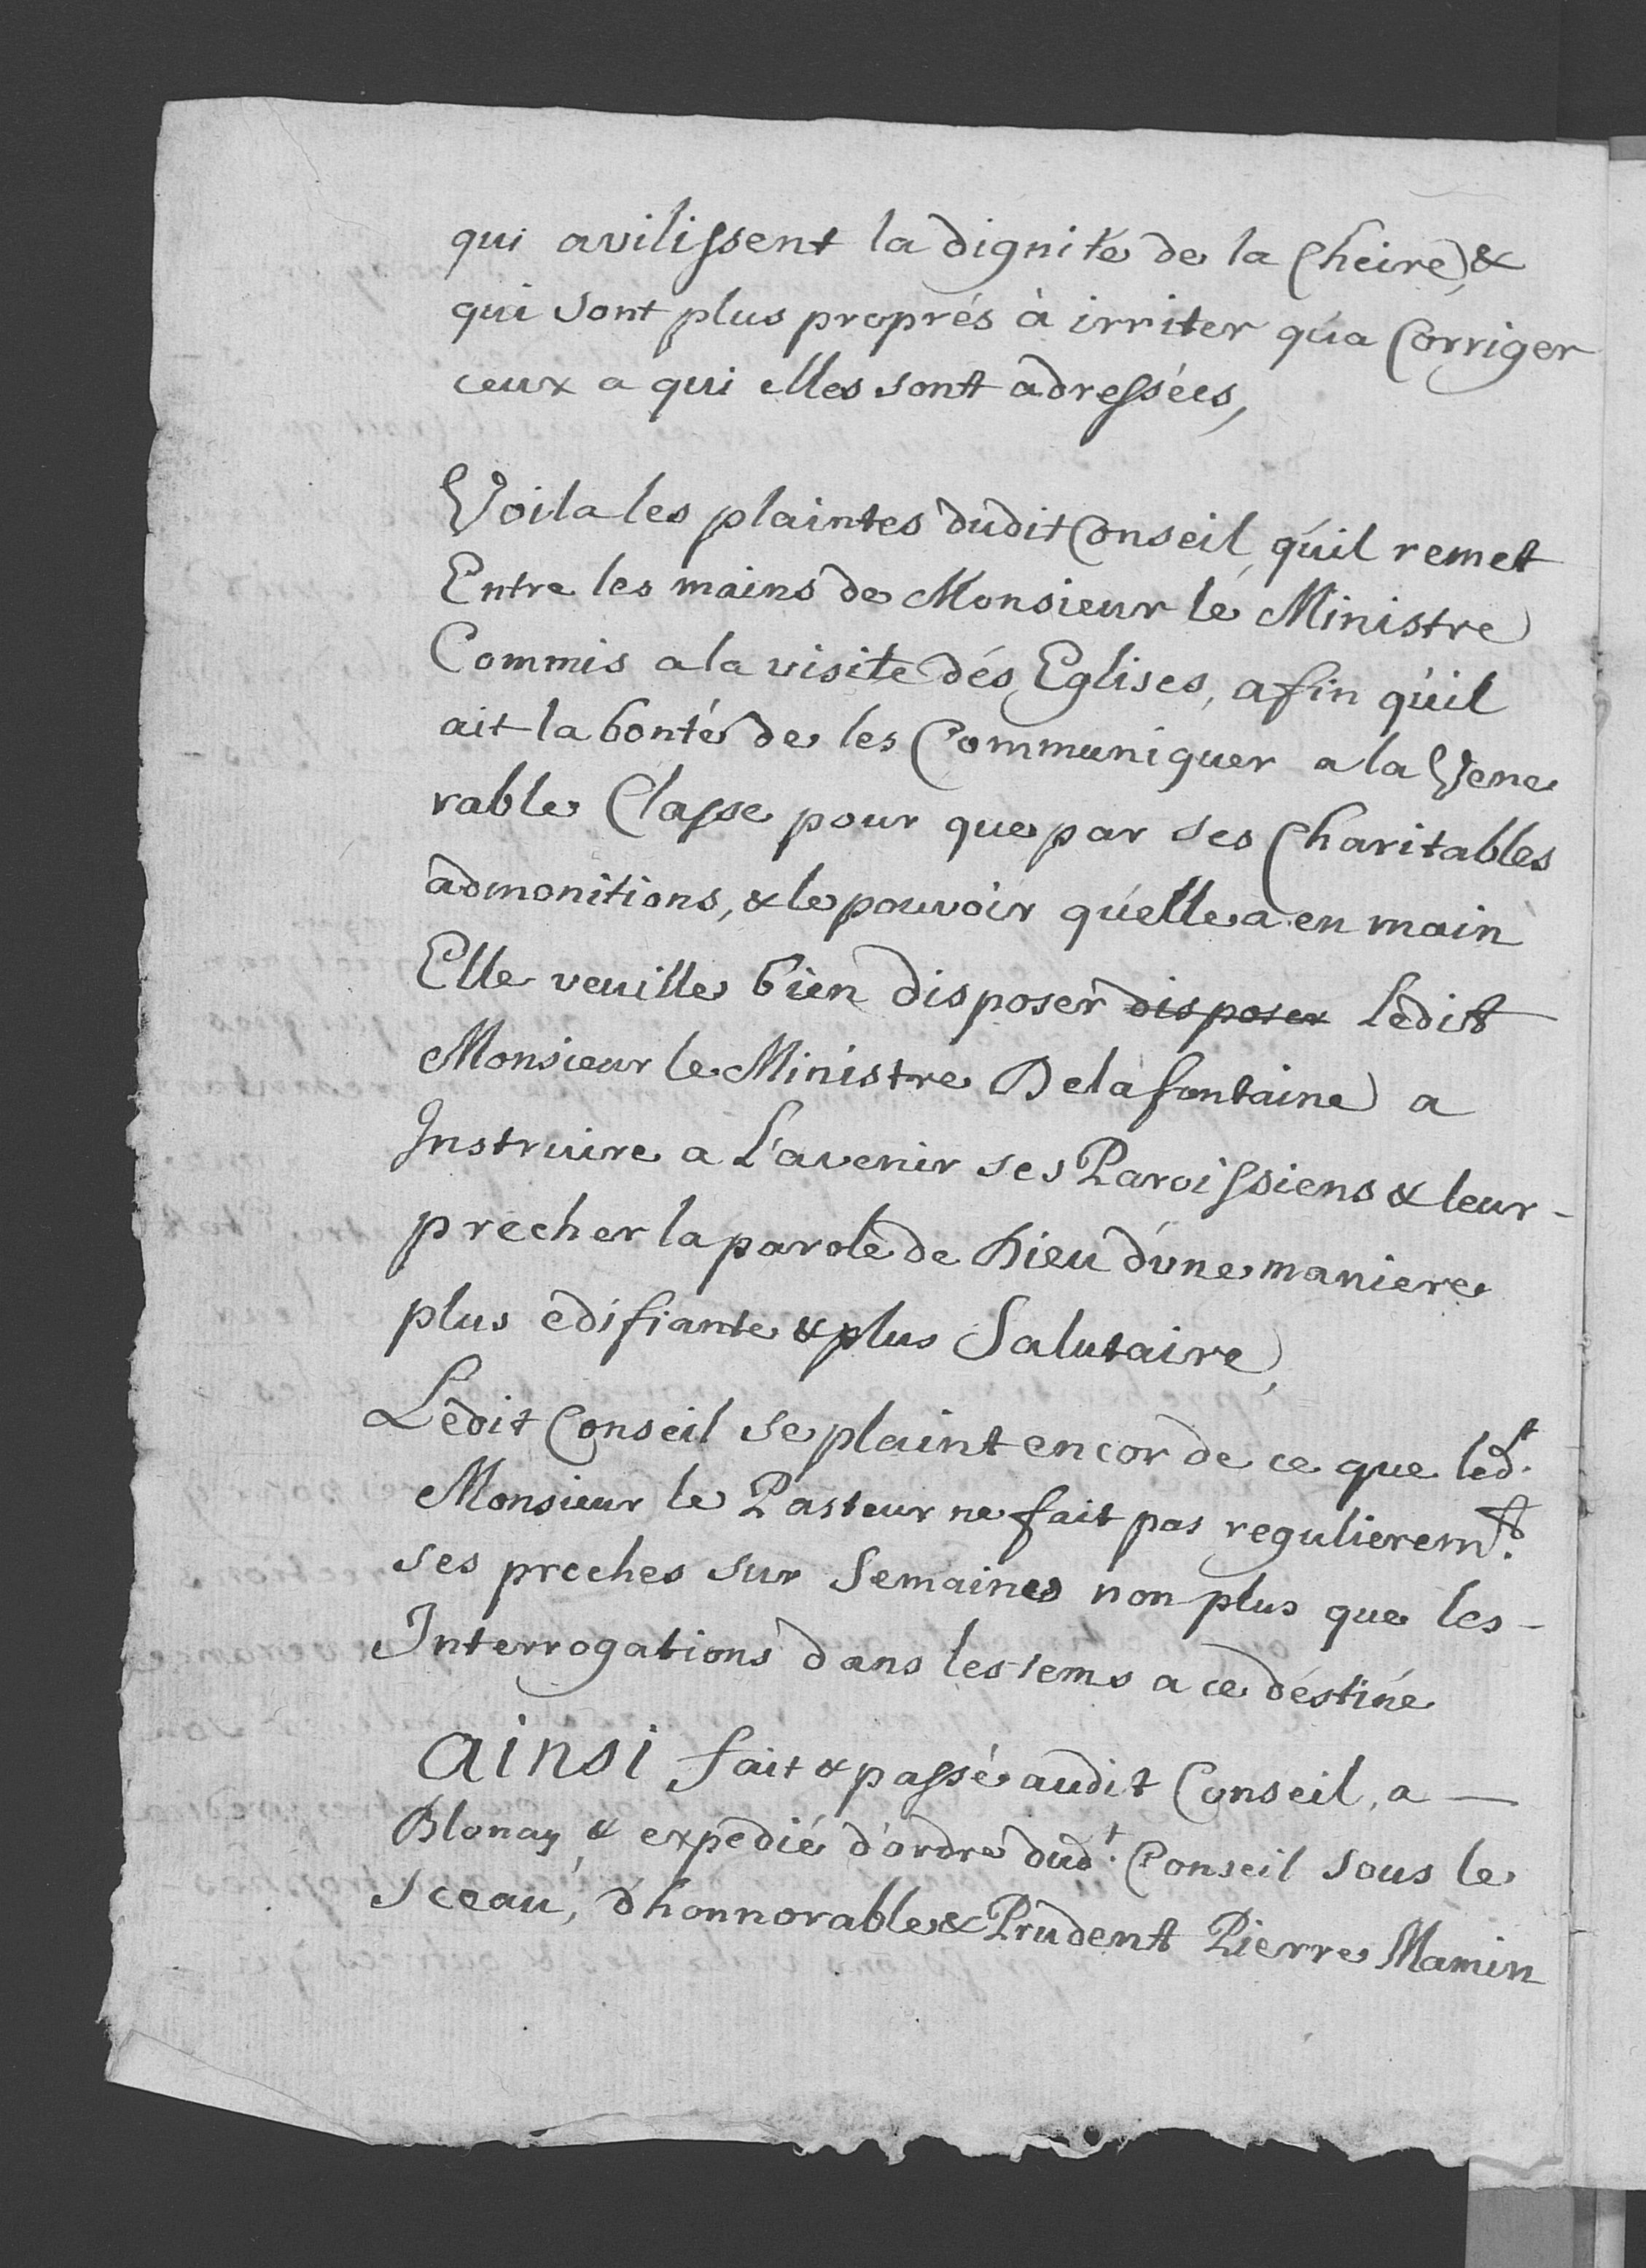 qui avilissent la dignité de la Cheire, &
qui sont plus proprés à irriter qu'a Corriger
ceux a qui elles sont adressées,
Voila les plaintes dudit Conseil, qu'il remet
Entre les mains de Monsieur le Ministre
Commis a la visite dés Eglises, afin qu'il
ait la bonté de les Communiquer a la Vene
rable Classe pour que par ses Charitables
admonitions, & le pouvoir qu'elle a en main
Elle veuille bien disposer disposer Ledit
Monsieur le Ministre Delafontaine a
Instruire a L'avenir ses Paroissiens & leur -
precher la parole de Dieu d'une maniere
plus edifiante & plus Salutaire,
Ledit Conseil se plaint encor de ce que led.t
Monsieur le Pasteur ne fait pas regulierem.t
ses preches sur Semaines non plus que les -
Interrogations dans les tems a ce déstiné
ainsi fait & passé audit Conseil, a —
Blonay & expedié d'ordre dud.t Conseil sous le
Sceau, d'honnorable & Prudent Pierre Mamin